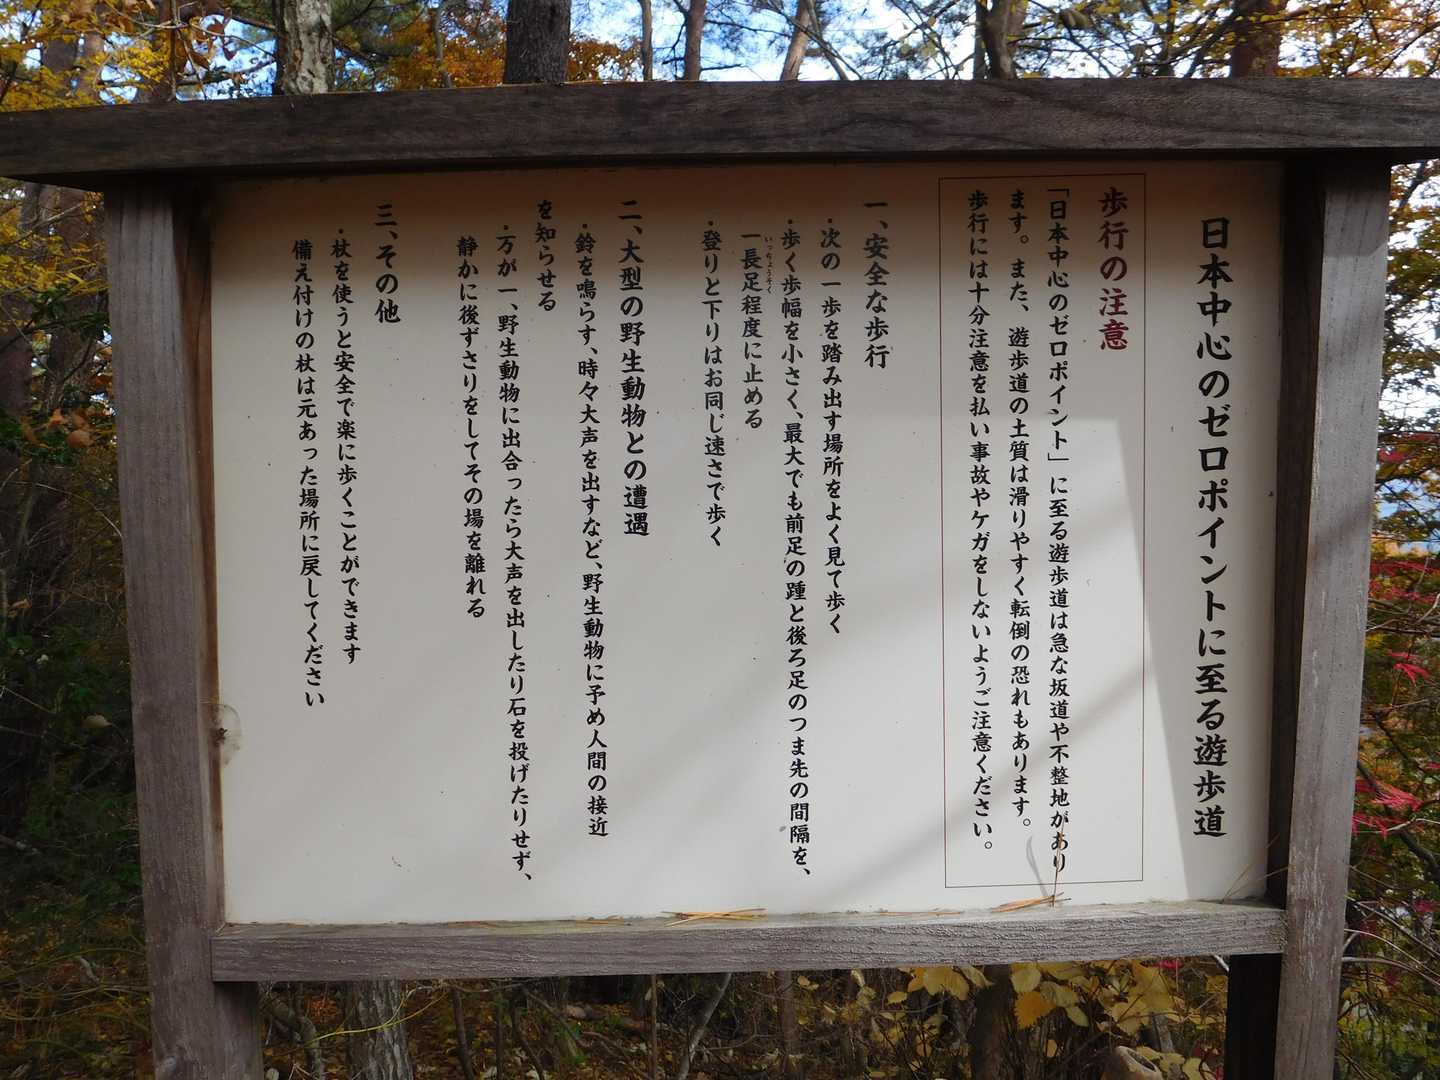 日本中心のゼロポイントに至る遊歩道
歩行の注意
「日本中心のゼロポイント」に至る遊歩道は急な坂道や不整地があり
ます。また、遊歩道の土質は滑りやすく転倒の恐れもあります。
歩行には十分注意を払い事故やケガをしないようご注意ください。
一、安全な歩行
・次の一歩を踏み出す場所をよく見て歩く
・歩く歩幅を小さく、最大でも前足の踵と後ろ足のつま先の間隔を、
いっちょうそく
一長足程度に止める
・登りと下りはお同じ速さで歩く
二、大型の野生動物との遭遇
・鈴を鳴らす、時々大声を出すなど、野生動物に予め人間の接近
を知らせる
・万が一、野生動物に出合ったら大声を出したり石を投げたりせず、
静かに後ずさりをしてその場を離れる
三、その他
・杖を使うと安全で楽に歩くことができます
備え付けの杖は元あった場所に戻してください